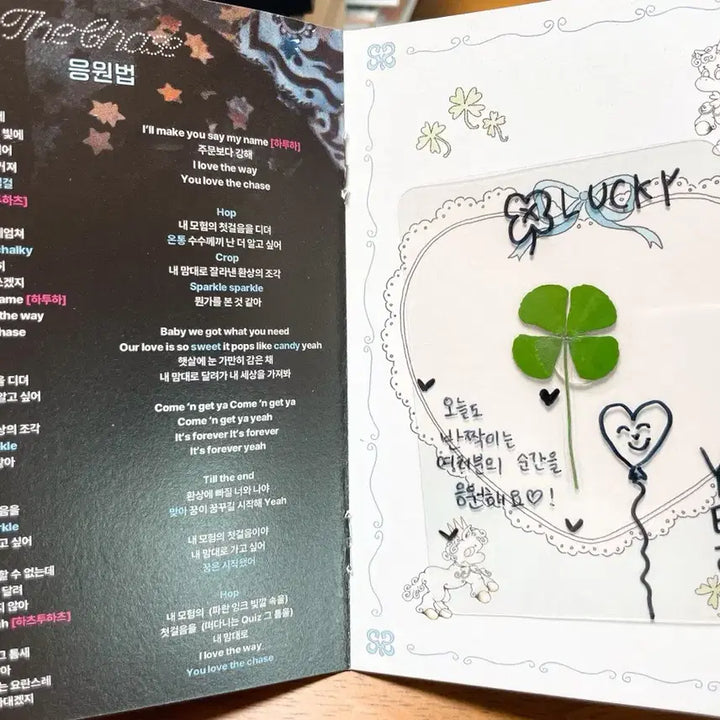 The Chase
응원법
빛에
chalky
ame [하투하]
the way
hase
을 디뎌
알고 싶어
상의 조각
kle
같아
음을
rkle
고 싶어
할 수 없는데
달려
지 않아
[하츠투하츠]
그 틈새
는 요란스레
I'll make you say my name [하투하]
주문보다 강해
I love the way
You love the chase
Hop
내 모험의 첫걸음을 디뎌
온통 수수께끼 난 더 알고 싶어
Crop
내 맘대로 잘라낸 환상의 조각
Sparkle sparkle
뭔가를 본 것 같아
Baby we got what you need
Our love is so sweet it pops like candy yeah
햇살에 눈 가만히 감은 채
내 맘대로 달려가 내 세상을 가져봐
Come 'n get ya Come 'n get ya
Come 'n get ya yeah
It's forever It's forever
It's forever yeah
Till the end
환상에 빠질 너와 나야
맞아 꿈이 꿈꾸길 시작해 Yeah
내 모험의 첫걸음이야
내 맘대로 가고 싶어
꿈은 시작됐어
Hop
내 모험의 (파란 잉크 빛깔 속을)
첫걸음을 (떠다니는 Quiz 그 틈을)
내 맘대로
I love the way
You love the chase
LUCKY
오늘도
반짝이는
여러분의 순간을
응원해요♡!